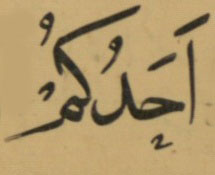 اَحَدُكُمْ